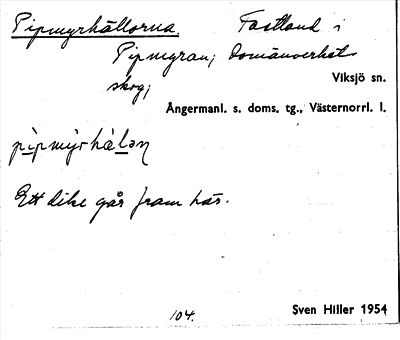 Pipmyrhällorna. Fastland i
Pipmyran; domänverket
skog;
Viksjö sn.
Ångermanl. s. doms. tg., Västernorrl. l.
Ett dike går fram här.
104.
Sven Hiller 1954